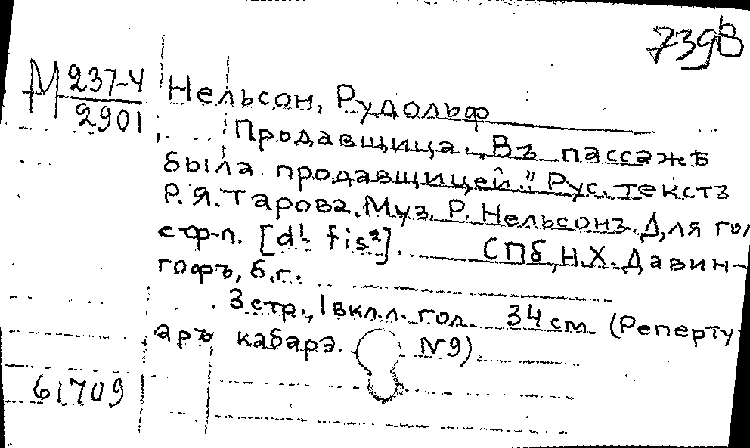 7398
М 237-4 Нельсон, Рудольф
2901
Продавщица. „Въ пассажѣ
была продавщицей." Рус. текстъ
Р.Я. Тарова. Муз. Р. Нельсонъ. Для гол
стр-п. [d¹- fis²]. СПб, Н.Х. Давин-
гофъ, б.г.
3 стр., 1 вкл.л. гол. 34 см (Реперту
аръ кабарэ. №9).
61709